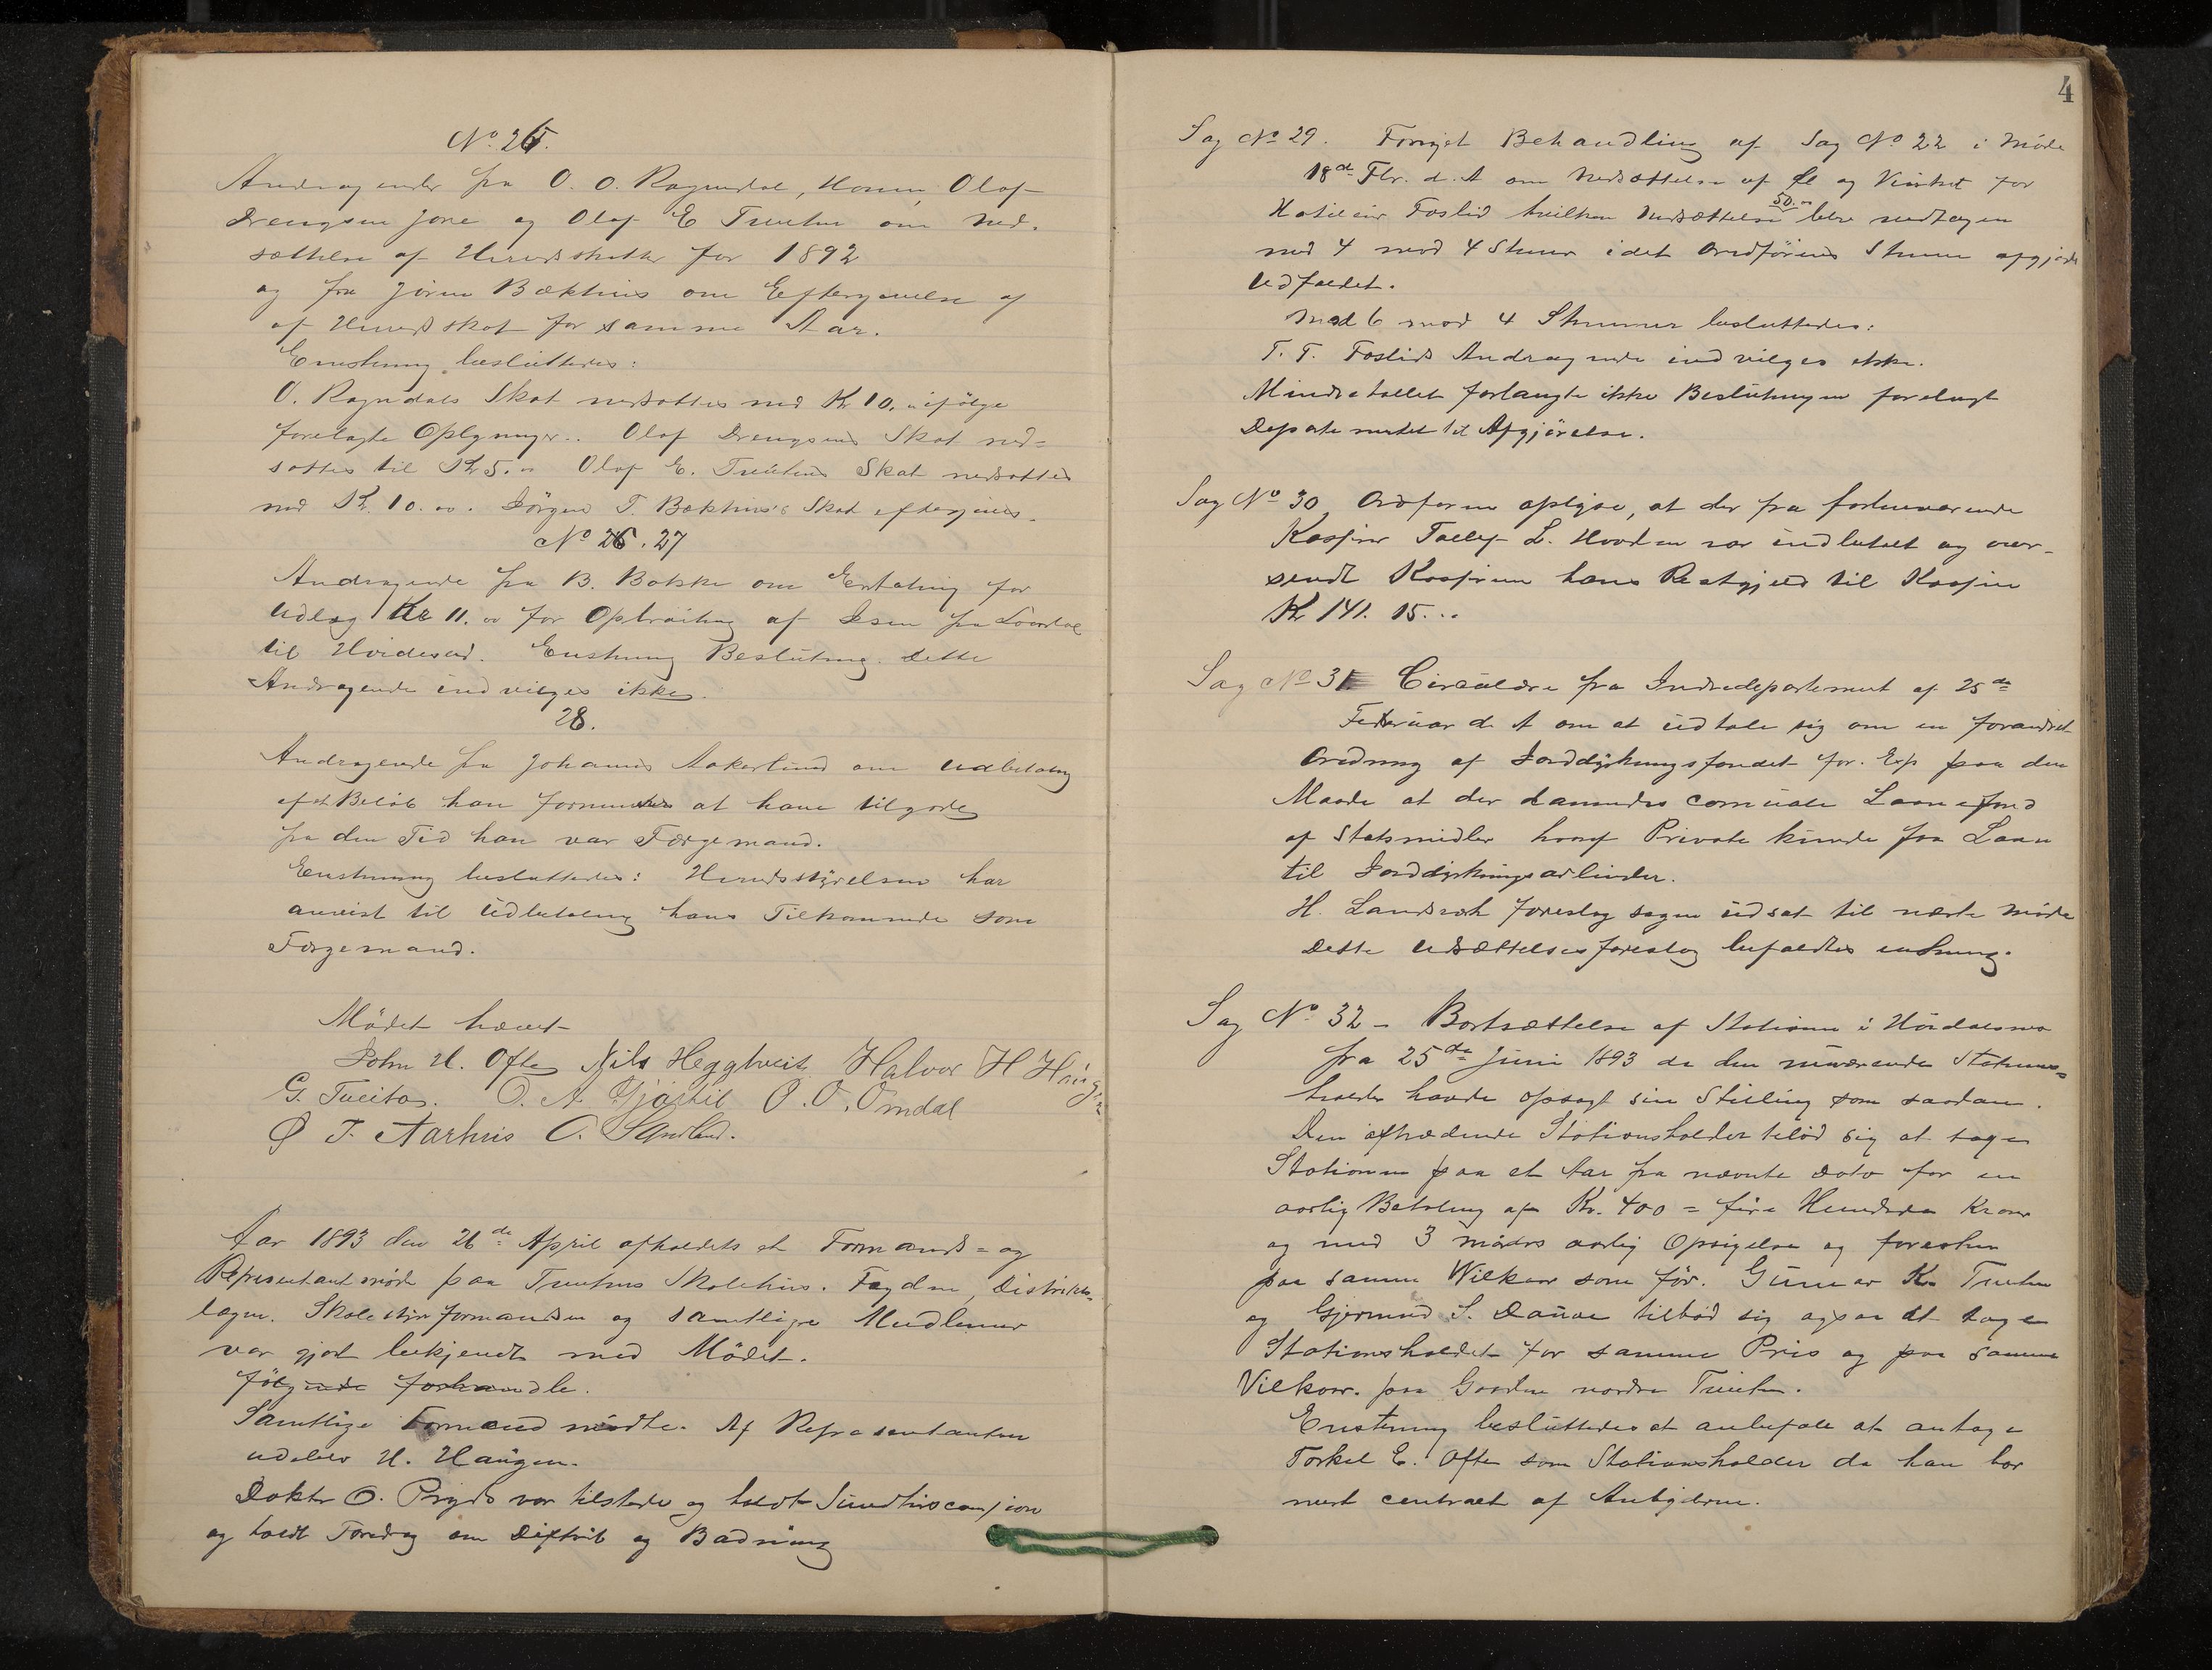 No. 26.
Andragender fra O. O. Ragndal, Olaf
Drengsen Jore og Olaf E Tveten om Ned-
sættelse af Herredsskatten for 1892
og fra Jörun Bækhus om Eftergivelse af
af Herredsskat for samme Aar.
Enstemmig besluttedes:
O. Ragndals Skat nedsattes med Kr 10. ifölge
forelagte Oplysninger. Olaf Drengsens Skat ned-
sattes til Kr 5. Olaf E. Tveitens Skat nedsattes
med Kr. 10.00. Jörgen T. Bækhus's Skat eftergives.
No 26.27
Andragende fra B. Bakke om Erstatning for
Udlæg Kr 11.00 for af Isen fra
til Hvideseid. Enstemmig Beslutning. Dette
Andragende indvilges ikke.
28.
Andragende fra Johannes Aakerlund om Udbetaling
af et Belöb han formentes at have tilgode
fra den Tid han var Færgemand.
Enstemmig besluttedes: Herredsstyrelsen har
anvist til Udbetaling hans Tilkommende som
Færgemand.
Mödet hævet
John H. Ofte Nils Heggtveit Halvor H Haugen
G. Tveito. O. A. Gjöstil O. O. Omdal
Ø T. Aarhus O. Sandland.
Aar 1893 den 26de April afholdets et Formands= og
Representantmöde paa Tveitens Skolehus. Fogden, Distrikts-
lægen. Skolestyrformanden og samtlige Medlemer
var gjort bekjendt med Mödet.
fölgende forhandle.
Samtlige Formænd mödte. Af Representanter
udeblev H. Haugen.
Doktor O. Pryds var tilstede og holdt
og holdt Foredrag om Diftrit og Badning
4
Sag No 29. Fornyet Behandling af Sag No 22 i Möde
18de Fbr. d. A om Nedsættelse af Öl og Vinskat for
50.
Hoteleier Foslid hvilken Nedsættelse blev vedtagen
med 4 mod 4 Stemer idet Ordförerens Steme afgjorde
Udfaldet.
Med 6 mod 4 Stemmer besluttedes:
T. T. Foslids Andragende indvilges ikke.
Mindretallet forlangte ikke Beslutningen forelagt
Departementet til Afgjörelse.
Sag No 30, Ordföreren oplyse, at der fra forhenværende
Kasserer L. Hovden var indbetalt og over-
sendt Kassereren hans Restgjeld til Kassen
Kr 141. 15...
Sag No 31 Circulære fra Indredepartement af 25de
Februar d. A om at udtale sig om en forandret
Ordning af Jorddyrkningsfondet for. Exp paa den
Maade at der dannedes comunale Laanefond
af Statsmidler hvoraf Private kunde faa Laan
til Jorddyrkningsarbeider.
H. Landsverk foreslog sagen udsat til næste Möde
Dette Udsættelsesforeslag bifaldtes enstemmig.
Sag No 32 - Bortsættelse af Stationen i
fra 25de Juni 1893 da den nuværende Stations=
holder havde opsagt sin Stilling som saadan.
Den aftrædende Stationsholder tilöd sig at tage
Stationen paa et Aar fra nævnte Dato for en
aarlig Betaling af Kr. 400 = fire Hundrede Kroner
og med 3 maaneders aarlig Opsigelse og forøvrigt
paa samme Wilkaar som för. Gunnar K. Tveten
og Gjermund S. Dalane tilböd sig ogsaa at tage
Stationsholdet for samme Pris og paa samme
Vilkaar. paa Gaarden nordre Tveiten.
Enstemmig besluttedes at anbefale at antage
Torkel E. Ofte som Stationsholder da han bor
mest centralt af Anbyderne.